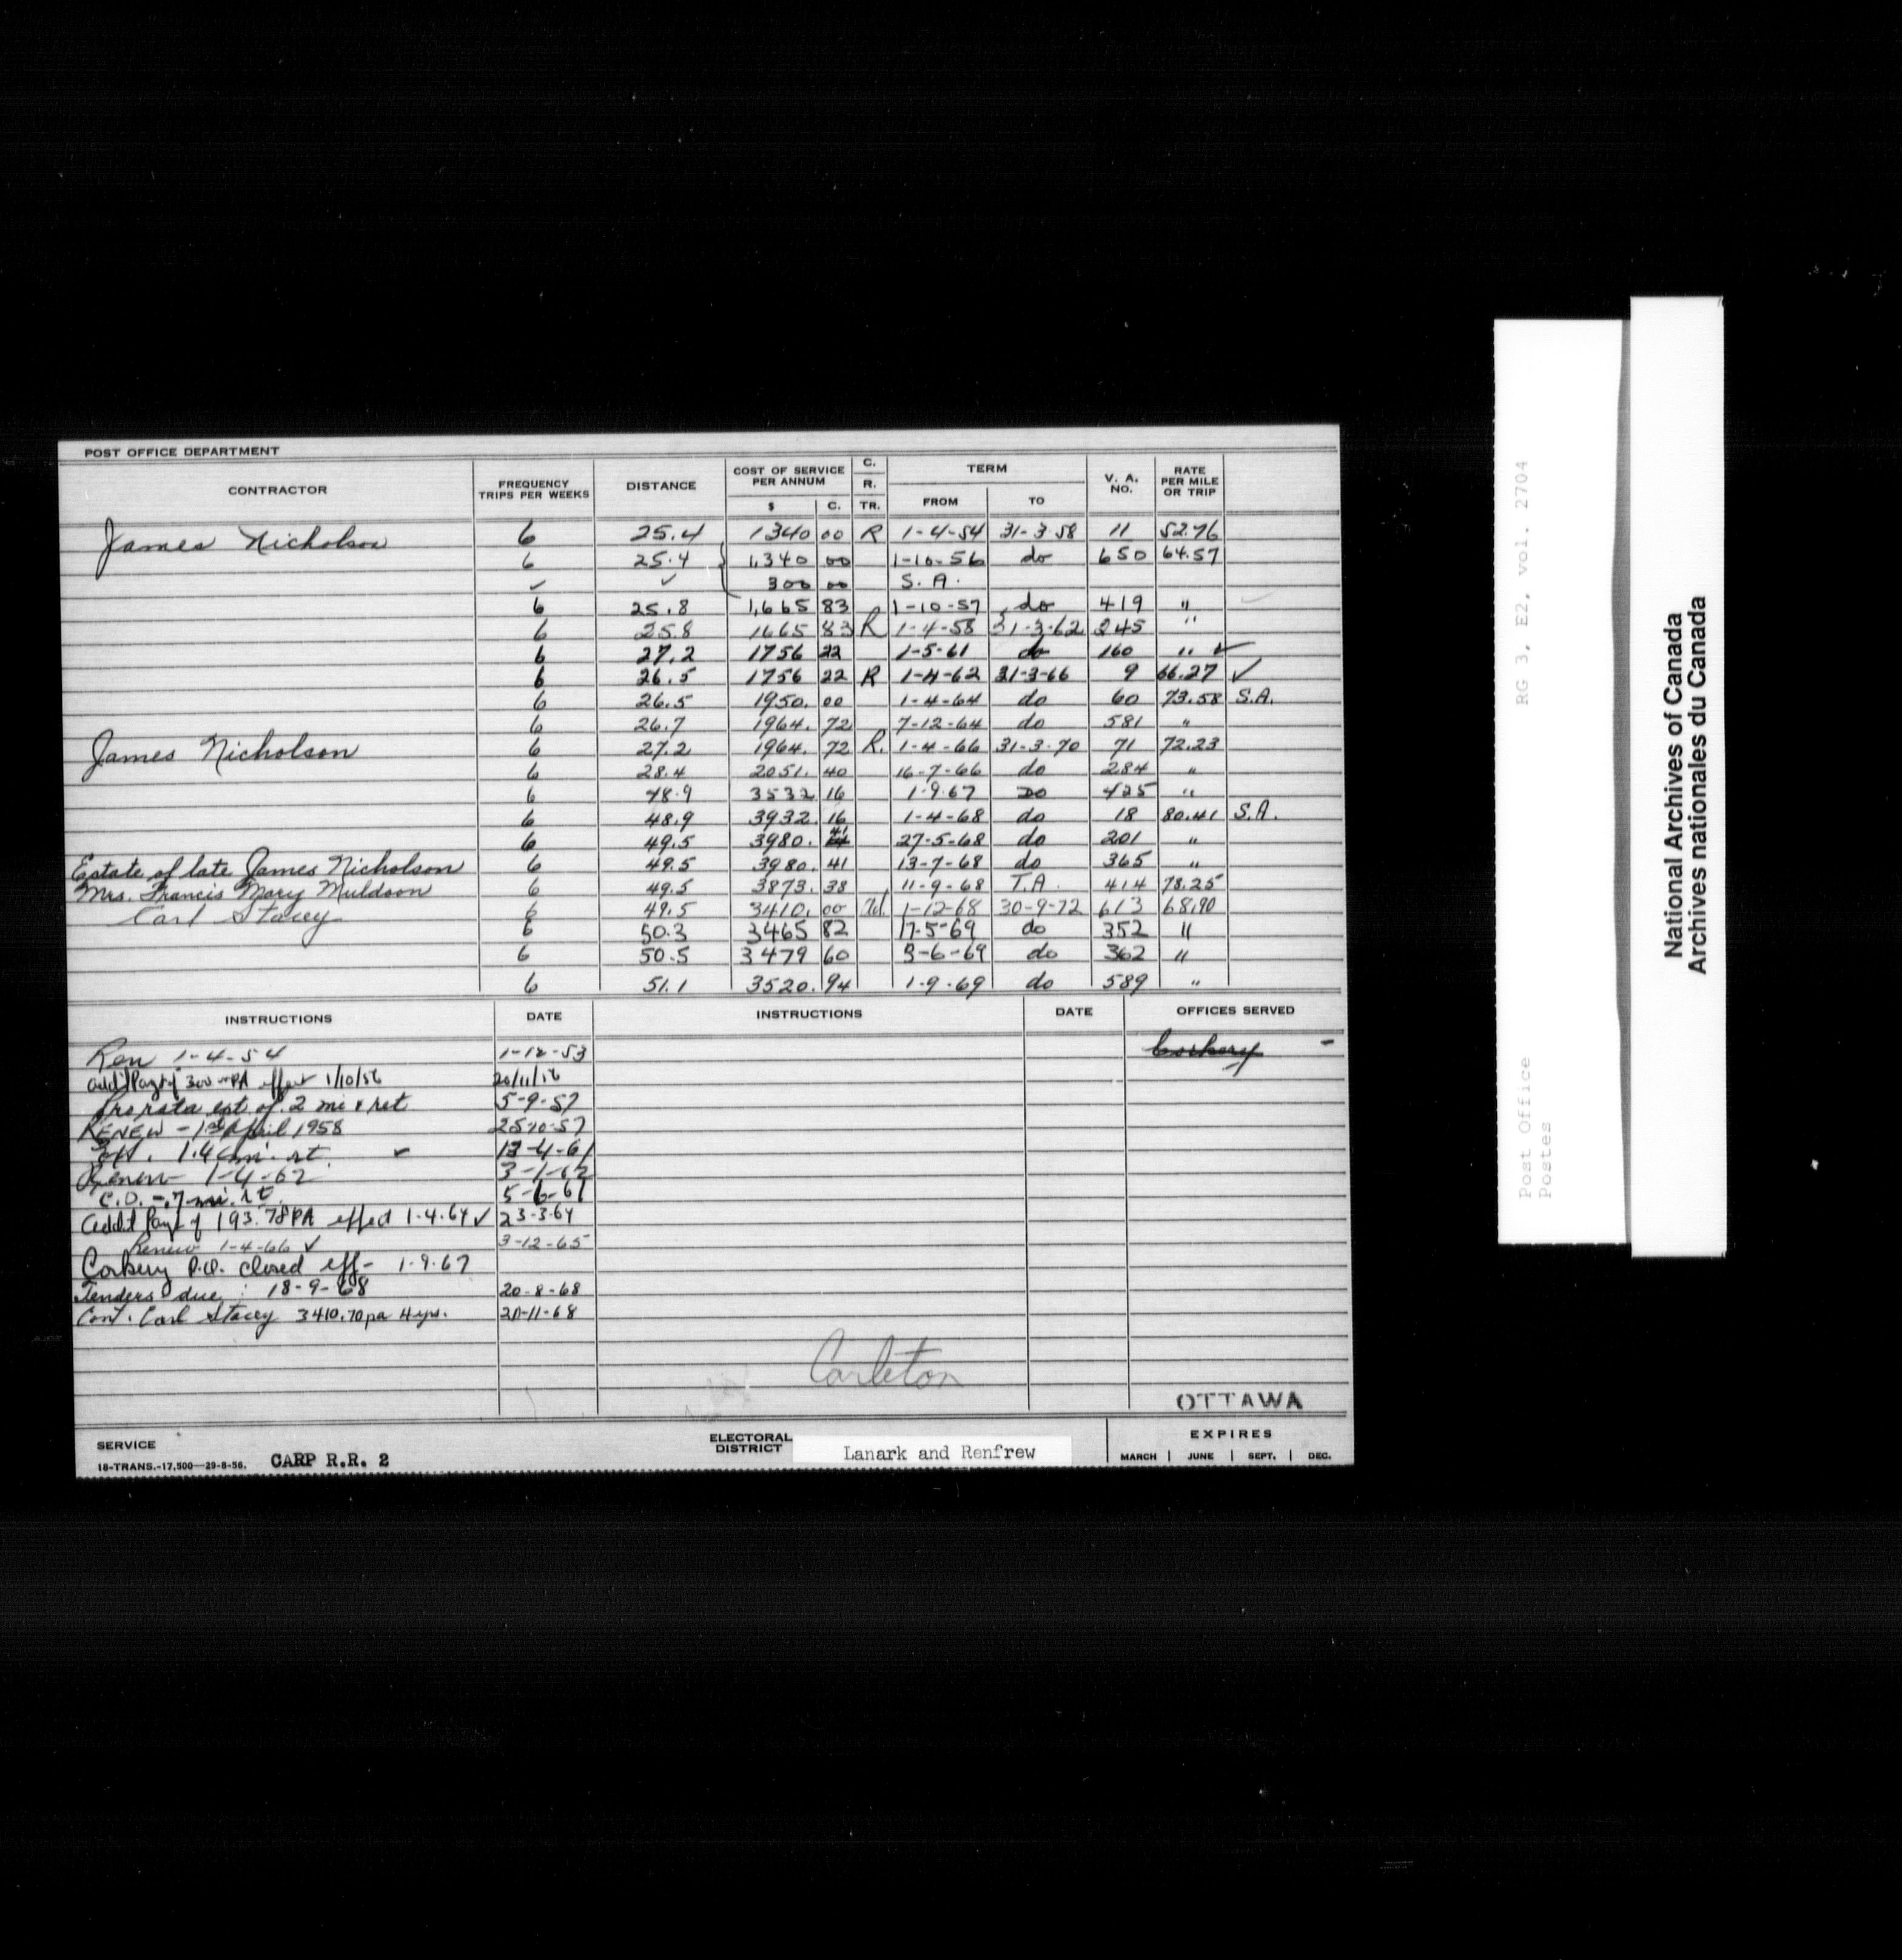 POST OFFICE DEPARTMENT
CONTRACTOR FREQUENCY TRIPS PER WEEKS DISTANCE COST OF SERVICE PER ANNUM $ C. C. R. TR. TERM FROM TO V. A. NO. RATE PER MILE OR TRIP
James Nicholson 6 25.4 1340 00 R 1-4-54 31-3-58 11 52.76
6 25.4 1,340 00 1-10-56 do 650 64.57
✓ ✓ 300 00 S.A.
6 25.8 1,665 83 1-10-57 do 419 "
6 25.8 1665 83 R 1-4-58 31-3-62 245 "
6 27.2 1756 22 1-5-61 do 160 " ✓
6 26.5 1756 22 R 1-4-62 31-3-66 9 66.27 ✓
6 26.5 1950. 00 1-4-64 do 60 73.58 S.A.
6 26.7 1964. 72 7-12-64 do 581 "
James Nicholson 6 27.2 1964. 72 R. 1-4-66 31-3-70 71 72.23
6 28.4 2051. 40 16-7-66 do 284 "
6 48.9 3532 16 1-9-67 do 425 "
6 48.9 3932. 16 1-4-68 do 18 80.41 S.A.
6 49.5 3980. 41 27-5-68 do 201 "
Estate of late James Nicholson 6 49.5 3980. 41 13-7-68 do 365 "
Mrs. Francis Mary Muldson 6 49.5 3873. 38 11-9-68 T.A. 414 78.25
Carl Stacey 6 49.5 3410. 00 1-12-68 30-9-72 613 68.90
6 50.3 3465 82 17-5-69 do 352 "
6 50.5 3479 60 3-6-69 do 362 "
6 51.1 3520. 94 1-9-69 do 589 "
INSTRUCTIONS DATE INSTRUCTIONS DATE OFFICES SERVED
Ren 1-4-54 1-12-53 Corkery -
Add'l Payt of 300 PA effect 1/10/56 20/11/56
Pro rata ext of .2 mi & ret 5-9-57
RENEW - 1st April 1958 25-10-57
Ext. 1.4 mi. rt. ✓ 13-4-61
Renew 1-4-62 3-1-62
C.D. -.7 mi. rt. 5-6-61
Addit Pay of 193.78 PA effect 1-4-64 ✓ 23-3-64
Renew 1-4-66 ✓ 3-12-65
Corkery P.O. closed eff- 1-9-67
Tenders due: 18-9-68 20-8-68
Cont. Carl Stacey 3410.70 pa 4 yrs. 20-11-68
Carleton
OTTAWA
SERVICE CARP R.R. 2 ELECTORAL DISTRICT Lanark and Renfrew EXPIRES
18-TRANS.-17,500—29-8-56. MARCH | JUNE | SEPT. | DEC.
RG 3, E2, vol. 2704
Post Office
Postes
National Archives of Canada
Archives nationales du Canada